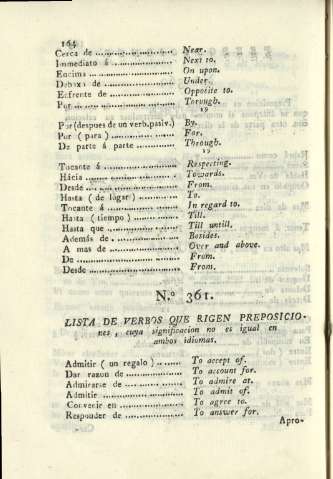 164
Cerca de .................... Near.
Inmediato á ................ Next to.
Encima ..................... On upon.
Debaxo de .................. Under.
Enfrente de ................ Opposite to.
Por ........................ Torough.
19
Por (despues de un verb. pasiv.) By.
Por ( para ) ............... For.
De parte á parte ........... Through.
19
Tocante á .................. Respecting.
Hácia ...................... Towards.
Desde ...................... From.
Hasta ( de lugar) .......... To.
Tocante á .................. In regard to.
Hasta ( tiempo ) ........... Till.
Hasta que .................. Till untill.
Además de .................. Besides.
A mas de ................... Over and above.
De ......................... From.
Desde ...................... From.
N.º 361.
LISTA DE VERBOS QUE RIGEN PREPOSICIO-
nes , cuya significacion no es igual en
ambos idiomas.
Admitir ( un regalo ) ...... To accept of.
Dar razon de ............... To account for.
Admirarse de ............... To admire at.
Admitir .................... To admit of.
Convenir en ................ To agree to.
Responder de ............... To answer for.
Apro-